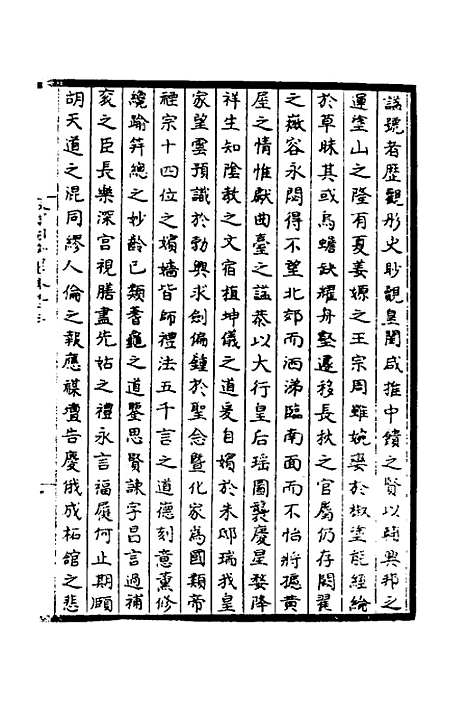 諡號者歷觀彤史眇覿皇闈咸推中饋之賢以翊興邦之
運塗山之隆有夏姜嫄之王宗周雖婉孌於椒塗能經綸
於草昧其或烏蟾缺耀舟壑遽移長秋之官屬仍存闕翟
之薇容永閟得不望北郊而洒涕臨南面而不怡將攄黃
屋之情惟獻曲臺之諡恭以大行皇后瑤圖襲慶星婺降
祥生知陰教之文宿植坤儀之道爰自嬪於朱邸瑞我皇
家望雲預識於勃興求劍偏鍾於聖念暨化家為國類帝
禋宗十四位之嬪嬙皆師禮法五千言之道德刻意薰修
纔踰笄總之妙齡已類耆龜之道鑒思賢諫字昌言過補
衮之臣長樂深宮視膳盡先姑之禮永言福履何止期頤
胡天道之混同繆人倫之報應禖壇告慶俄成柘館之悲